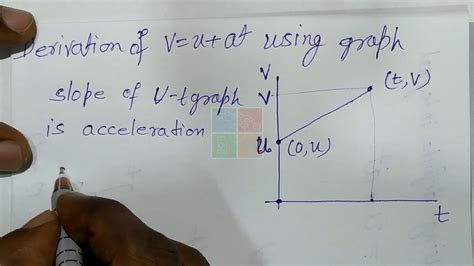 Derivation of V=u+at using graph
slope of V-t graph
is acceleration
V
V
(t,V)
u
(0,u)
t